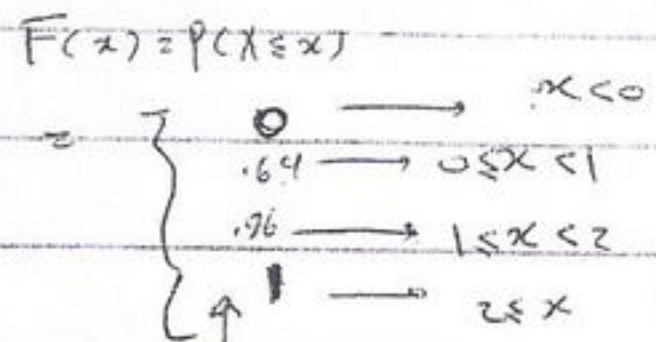 F(x) = P(X ≤ x)
= { 0 → x < 0
.64 → 0 ≤ x < 1
.96 → 1 ≤ x < 2
↑ 1 → 2 ≤ x